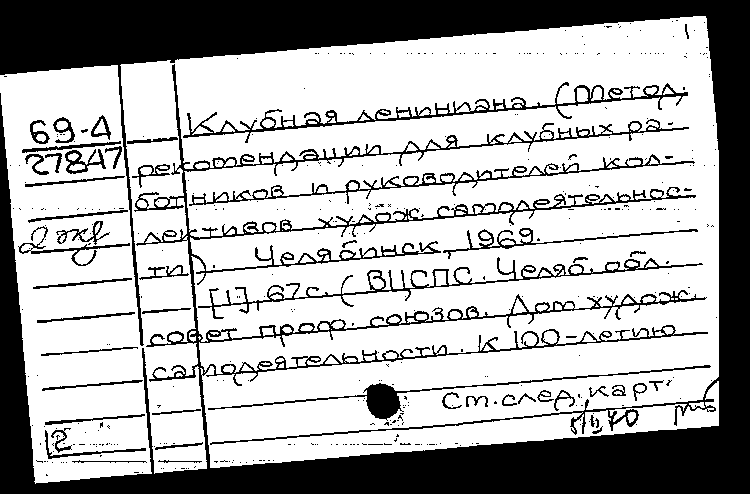 1
69-4
27847
2 экз
Клубная лениниана. (Метод.
рекомендации для клубных ра-
ботников и руководителей кол-
лективов худож. самодеятельнос-
ти). Челябинск, 1969.
[1], 67с. (ВЦСПС. Челяб. обл.
совет проф. союзов. Дом худож.
самодеятельности. К 100-летию
См.след.карт.
12